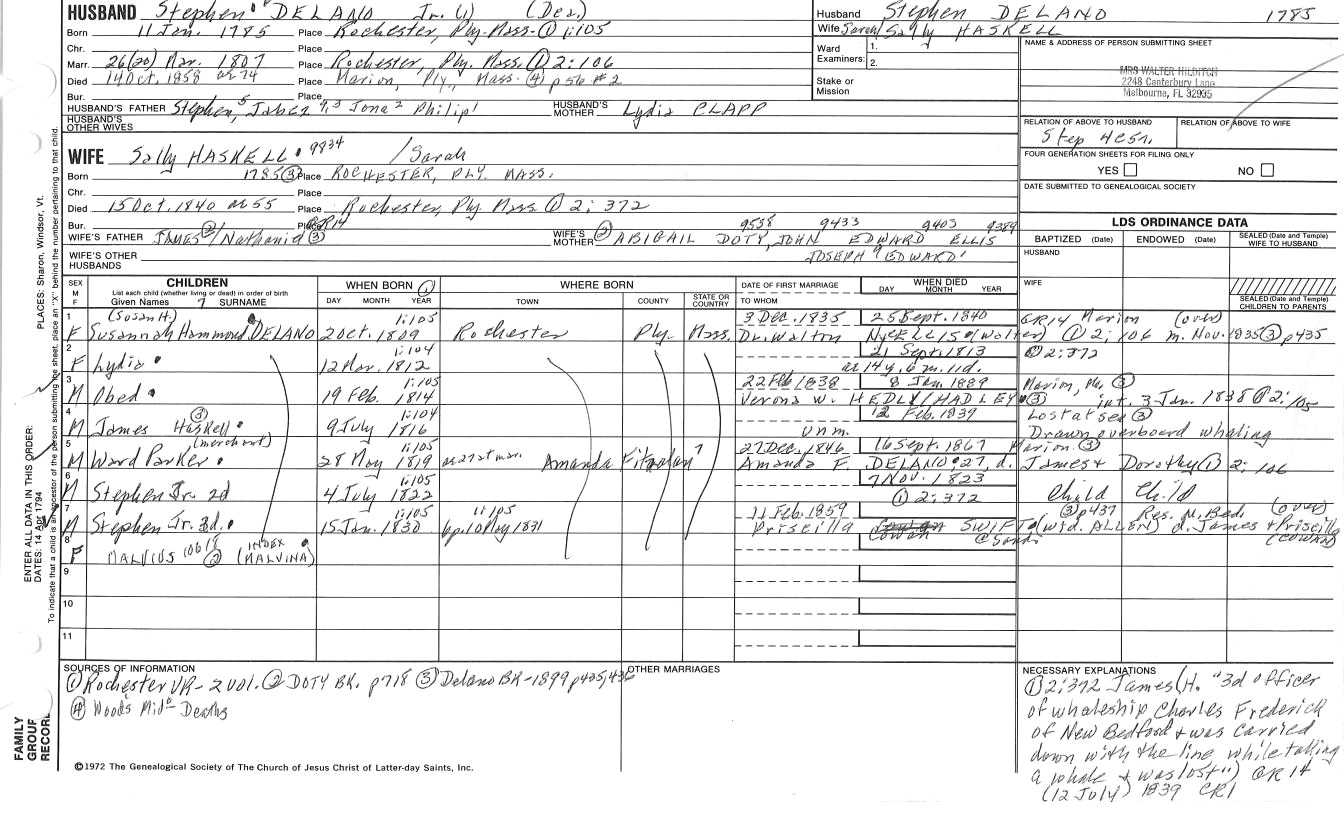 HUSBAND Stephen 6 DELANO Jr. (1) (Des.)
Born 11 Jan. 1785 Place Rochester, Ply-Mass-① 1:105
Chr. Place
Marr. 26(20) Mar. 1807 Place Rochester, Ply. Mass. ① 2:106
Died 14 Oct. 1858 ae 74 Place Marion, Ply. Mass. ④ p56 #2
Bur. Place
HUSBAND'S FATHER Stephen,5 Jabez 4,3 Jona2 Philip1 HUSBAND'S MOTHER Lydia CLAPP
HUSBAND'S OTHER WIVES
Husband Stephen DELANO 1785
Wife Sarah Sally HASKELL
Ward Examiners: 1.
2.
Stake or Mission
NAME & ADDRESS OF PERSON SUBMITTING SHEET
MRS WALTER HILDITCH
2248 Canterbury Lane
Melbourne, FL 32935
RELATION OF ABOVE TO HUSBAND RELATION OF ABOVE TO WIFE
Step 4C5r.
FOUR GENERATION SHEETS FOR FILING ONLY
YES NO
DATE SUBMITTED TO GENEALOGICAL SOCIETY
WIFE Sally HASKELL 9834 / Sarah
Born 1785 ③ Place ROCHESTER, PLY. MASS.
Chr. Place
Died 15 Oct. 1840 ae 55 Place Rochester, Ply Mass ① 2:372
Bur. Place GR14
WIFE'S FATHER JAMES ② / Nathaniel ③ WIFE'S MOTHER ② ABIGAIL DOTY, JOHN EDWARD ELLIS
9538 9433 9403 9389
WIFE'S OTHER HUSBANDS JOSEPH EDWARD1
LDS ORDINANCE DATA
BAPTIZED (Date) ENDOWED (Date) SEALED (Date and Temple) WIFE TO HUSBAND
HUSBAND
WIFE
SEALED (Date and Temple) CHILDREN TO PARENTS
SEX M F CHILDREN WHEN BORN ① WHERE BORN DATE OF FIRST MARRIAGE WHEN DIED
List each child (whether living or dead) in order of birth
Given Names 7 SURNAME DAY MONTH YEAR TOWN COUNTY STATE OR COUNTRY TO WHOM DAY MONTH YEAR
1 (Susan H.) 1:105 3 Dec. 1835 25 Sept. 1840 GR14 Marion (over)
F Susannah Hammond DELANO 2 Oct. 1809 Rochester Ply. Mass. Dr. Walton Nye ELLIS (Walter) ① 2:106 m. Nov. 1835 ③ p435
2 1:104 21 Sept. 1813 ① 2:372
F Lydia 12 Mar. 1812 ae 14 y. 6 m. 11 d.
3 1:105 22 Feb 1838 8 Jan. 1889 Marion, Ma. ③
M Obed 19 Feb. 1814 Verona W. HEDLY/HADLEY ③ int. 3 Jan. 1838 ① 2:105
4 ③ 1:104 12 Feb. 1839 Lost at sea ③
M James Haskell 9 July 1816 unm. Drawn overboard whaling
5 (merchant) 1:105 27 Dec. 1846 16 Sept. 1867 Marion. ③
M Ward Parker 28 May 1819 ae 27 at mar. Amanda Fitzalan 7 Amanda F. DELANO 27, d. James + Dorothy ① 2:106
6 1:105 7 Nov. 1823
M Stephen Jr. 2d 4 July 1822 ① 2:372 Child Child
7 1:105 1:105 11 Feb. 1859 ③ p437 Res. N. Bed. (over)
M Stephen Jr. 3d. 15 Jan. 1830 bp. 10 May 1831 Priscilla Cowan SWIFT (wid. ALLEN) d. James + Priscilla (COWAN)
8 F MALVIUS 10619 ② INDEX (MALVINA) @Sand.
9
10
11
SOURCES OF INFORMATION
① Rochester VR - 2 vol. ② DOTY BK. p718 ③ Delano BK-1899 p435,436
④ Wood's Mid- Deaths
OTHER MARRIAGES
NECESSARY EXPLANATIONS
① 2:372 James (H. "3d officer
of whaleship Charles Frederick
of New Bedford + was carried
down with the line while taking
a whale + was lost") GR 14
(12 July) 1839 CR1
©1972 The Genealogical Society of The Church of Jesus Christ of Latter-day Saints, Inc.
FAMILY GROUP RECORD
ENTER ALL DATA IN THIS ORDER:
DATES: 14 Apr 1794
PLACES: Sharon, Windsor, Vt.
To indicate that a child is an ancestor of the person submitting the sheet, place an "X" behind the number pertaining to that child.